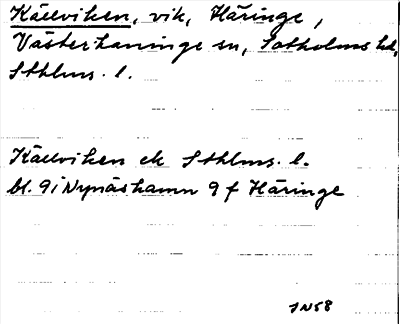 Källviken, vik, Häringe,
Västerhaninge sn, Sotholms hd,
Sthlms. l.
Källviken ek Sthlms. l.
bl. 9i Nynäshamn 9 f Häringe
IN58